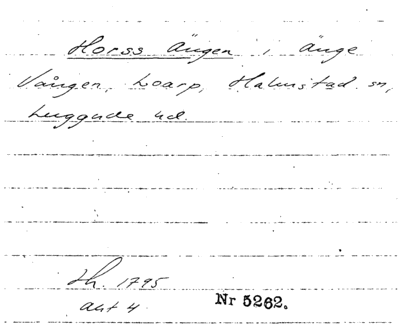 Horss Ängen i Änge
Vången, Loarp, Halmstad sn,
Luggude hd.
Lh. 1795
akt 4
Nr 5262.